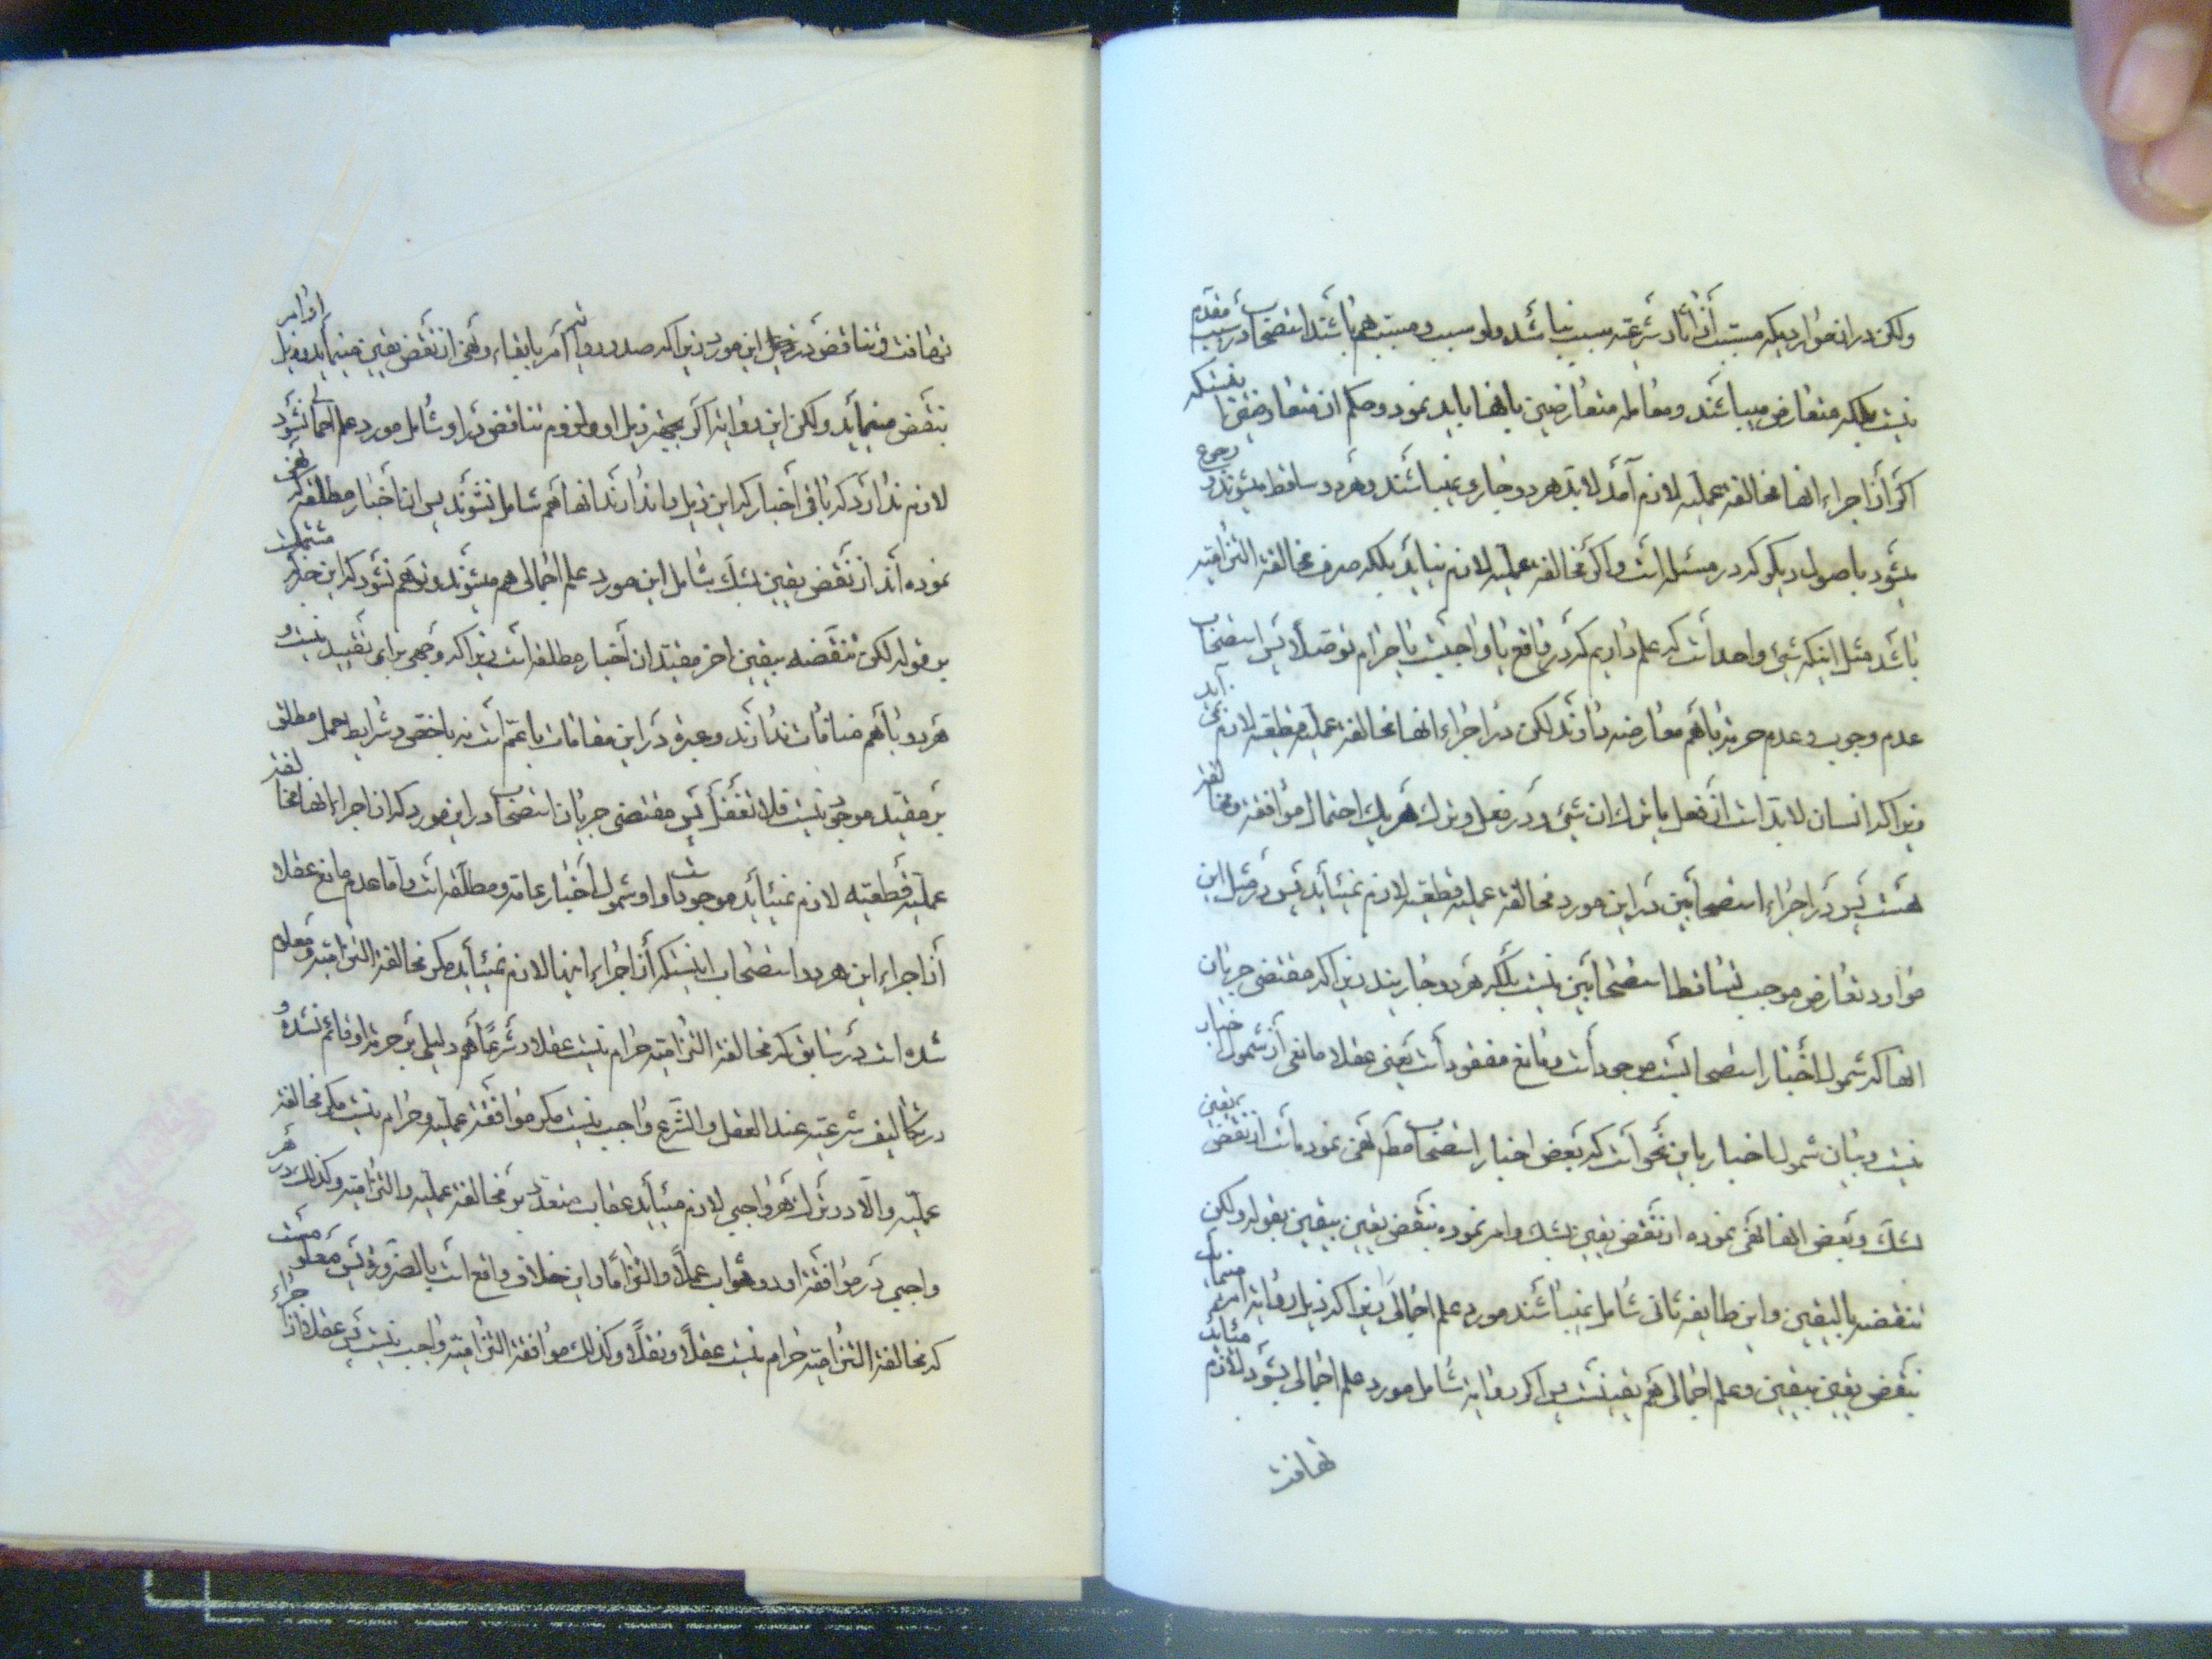 ولکن در ان موارد یکه مسبب از اثار شرعیه سبب نباشد ولو سبب و مسبب هم باشند استصحاب در سبب مقدم
نیست بلکه متعارض میباشند و معامله متعارضین بانها باید نمود و حکم ان متعارضین اینستکه
اکر از اجراء انها مخالفة عملیه لازم آمد لابد هر دو جاری نمیباشند و هر دو ساقط میشوند و رجوع
میشود باصول دیکر که در مسئله است و اکر مخالفة عملیه لازم نیاید بلکه صرف مخالفة التزامیه
باشد مثل اینکه شیئ واحد است که علم داریم که در واقع یا واجبست یا حرام توصلا پس استصحاب
عدم وجوب و عدم حرمة باهم معارضه دارند لکن در اجراء انها مخالفة عملیه قطعیه لازم نمی آید
زیرا که انسان لابد است از فعل یا ترک ان شیئ و در فعل و ترک هر یک احتمال موافقة و مخالفة
هست پس در اجراء استصحابین در این مورد مخالفة عملیه قطعیه لازم نمیاید پس در مثل این
موارد تعارض موجب تساقط استصحابین نیست بلکه هر دو جاریند زیرا که مقتضی جریان
انها که شمول اخبار استصحابست موجود است و مانع مفقود است یعنی عقلا مانعی از شمول اخبار
نیست و بیان شمول اخبار باین نحو است که بعض اخبار استصحاب مط نهی نموده است از نقض یقین
بشک و بعض انها نهی نموده از نقض یقین بشک و امر نموده بنقض یقین بیقین بقوله ولکن
تنقضه بالیقین و این طایفه ثانی شامل نمیباشند مورد علم اجمالی زیرا که ذیل روایة امر مینماید
بنقض یقین بیقین و علم اجمالی هم یقینست پس اکر روایة شامل مورد علم اجمالی بشود لازم میاید
تهافت
تهافت و تناقض در ذیل این مورد زیرا که صدر روایة آمر بابقاء و نهی از نقض یقین مینماید و ذیل او امر
بنقض مینماید ولکن این روایة اکر بجهة ذیل او و لزوم تناقض در او شامل مورد علم اجمالی نشود
لازم ندارد که باقی اخبار که این ذیل را ندارند انها هم شامل نشوند پس ان اخبار مطلقه که نهی
نموده اند از نقض یقین بشک شامل این مورد علم اجمالی هم میشوند و توهم نشود که این خبر که مشتملست
بر قوله لکن تنقضه بیقین اخر مقید ان اخبار مطلقه است زیرا که وجهی برای تقیید نیست و
هر دو باهم منافات ندارند و عبرة در این مقامات باعم است نه باخص و شرایط حمل مطلق
بر مقید موجود نیست فلا تغفل پس مقتضی جریان استصحاب در این مورد که از اجراء انها مخالفة
عملیه قطعیه لازم نمیاید موجود است و او شمول اخبار عامه و مطلقه است و اما عدم مانع عقلا
از اجراء این هر دو استصحاب اینستکه از اجراء اینها لازم نمیاید مکر مخالفة التزامیه و معلوم
شده است در سابق که مخالفة التزامیه حرام نیست عقلا و شرعا هم دلیلی بر حرمة او قائم نشده و
در تکالیف شرعیه عند العقل و الشرع واجب نیست مکر موافقة عملیه و حرام نیست مکر مخالفة
عملیه والا در ترک هر واجبی لازم میاید عقاب متعدد بر مخالفة عملیه و التزامیه و کذلک در هر
واجبی در موافقة او دو ثواب عملا و التزاما و این خلاف واقع است بالضرورة پس معلو مست
که مخالفة التزامیه حرام نیست عقلا و نقلا و کذلک موافقة التزامیه واجب نیست پس عقلا از اجراء